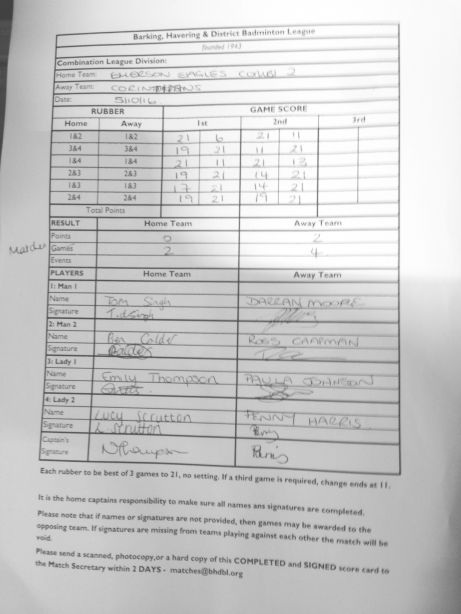 Barking, Havering & District Badminton League
founded 1943
Combination League Division:
Home Team: EMERSON EAGLES COMBI 2
Away Team: CORINTHIANS
Date: 5/10/16
RUBBER GAME SCORE
Home Away 1st 2nd 3rd
1&2 1&2 21 6 21 11
3&4 3&4 19 21 11 21
1&4 1&4 21 11 21 13
2&3 2&3 19 21 14 21
1&3 1&3 17 21 14 21
2&4 2&4 19 21 19 21
Total Points
RESULT Home Team Away Team
Points 0 2
Matches Games 2 4
Events
PLAYERS Home Team Away Team
1: Man 1
Name Tom Singh DARRAN MOORE
Signature T.d.Singh
2: Man 2
Name Ben Calder ROSS CHAPMAN
Signature
3: Lady 1
Name Emily Thompson PAULA JOHNSON
Signature
4: Lady 2
Name Lucy Scrutton PENNY HARRIS
Signature L Scrutton Penny
Captain's
Signature
Each rubber to be best of 3 games to 21, no setting. If a third game is required, change ends at 11.
It is the home captains responsibility to make sure all names ans signatures are completed.
Please note that if names or signatures are not provided, then games may be awarded to the
opposing team. If signatures are missing from teams playing against each other the match will be
void.
Please send a scanned, photocopy,or a hard copy of this COMPLETED and SIGNED score card to
the Match Secretary within 2 DAYS - matches@bhdbl.org